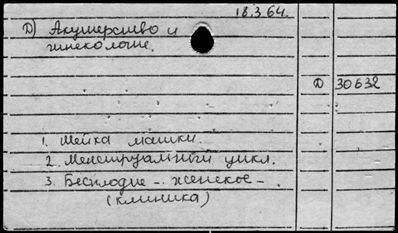 18.3.64.
D) Акушерство и
гинекологие.
D 30632
1. Шейка матки.
2. Менструальный цикл.
3. Бесплодие - женское -
(клиника)